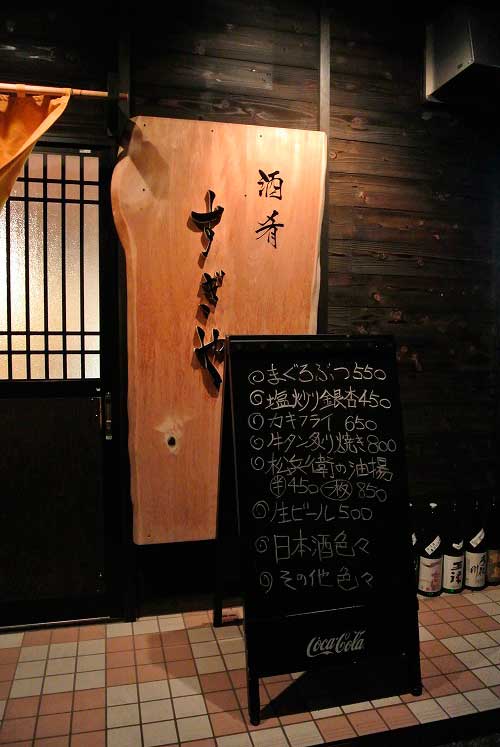 酒肴
すぎや
まぐろぶつ 550
塩炒り銀杏 450
カキフライ 650
牛タン炙り焼き 800
松兵衛の油揚
半 450 一枚 850
生ビール 500
日本酒色々
その他色々
Coca-Cola